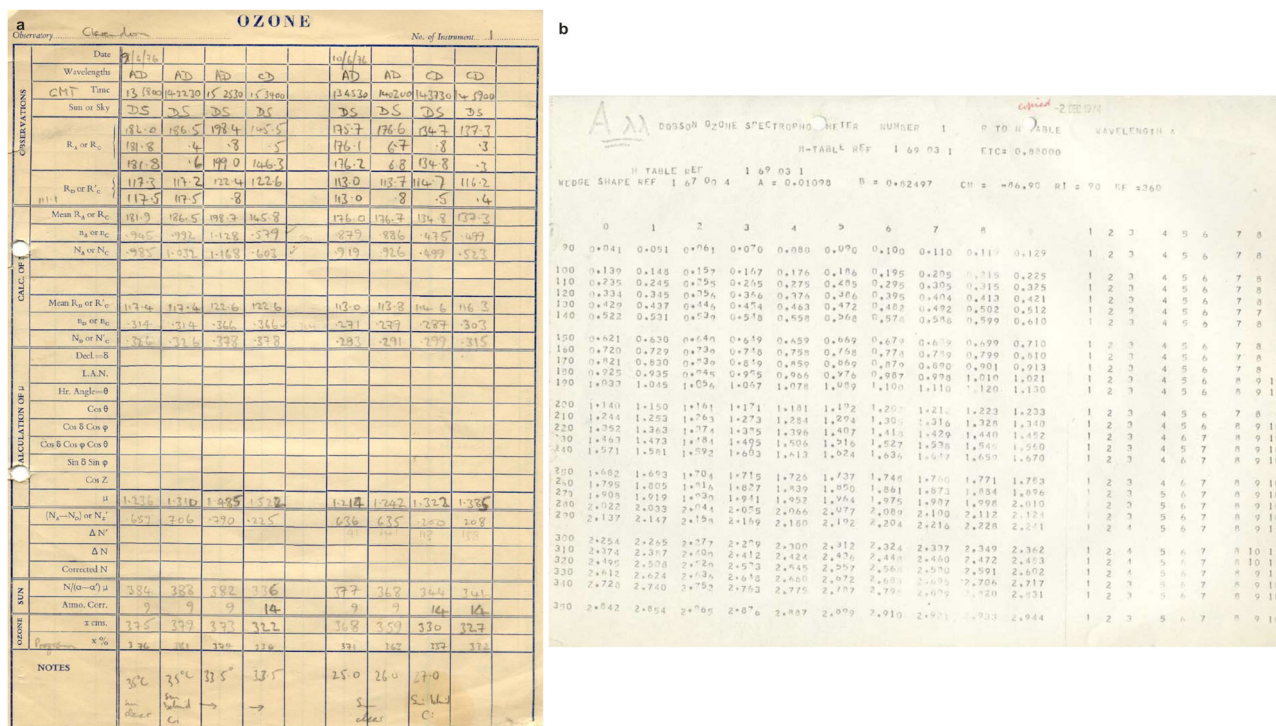 a
OZONE
Observatory Clarendon No. of Instrument 1
Date 9/6/76 10/6/76
Wavelengths AD AD AD CD AD AD CD CD
GMT Time 135800 142230 152530 153400 134530 140200 143730 145900
OBSERVATIONS
Sun or Sky DS DS DS DS DS DS DS DS
182.0 186.5 198.4 145.5 175.7 176.6 134.7 137.3
R_A or R_C 181.8 .4 .8 .5 176.1 6.7 .8 .3
181.8 .6 199.0 146.3 176.2 6.8 134.8 .3
R_D or R'_C 117.3 117.2 122.4 122.6 113.0 113.7 114.7 116.2
117.5 117.5 .8 113.0 .8 .5 .4
Mean R_A or R_C 181.9 186.5 198.7 145.8 176.0 176.7 134.8 137.3
n_A or n_C .945 .992 1.128 .579 .879 .886 .475 .499
N_A or N_C .985 1.032 1.168 .603 .919 .926 .499 .523
CALC. OF
Mean R_D or R'_C 117.4 117.4 122.6 122.6 113.0 113.8 114.6 116.3
n_D or n_C .314 .314 .366 .366 .271 .279 .287 .303
N_D or N'_C .326 .326 .378 .378 .283 .291 .299 .315
Decl.=δ
L.A.N.
Hr. Angle=θ
Cos θ
Cos δ Cos φ
Cos δ Cos φ Cos θ
Sin δ Sin φ
Cos Z
μ 1.236 1.310 1.485 1.522 1.214 1.242 1.322 1.335
(N_A—N_D) or N_Z' .659 706 .790 .225 636 635 .200 208
Δ N'
Δ N
Corrected N
SUN
N/(α—α') μ 384 388 382 336 377 368 344 341
Atmo. Corr. 9 9 9 14 9 9 14 14
OZONE
x cms. 375 379 373 322 368 359 330 327
Program x % 376 371 362 332
NOTES
35°C 35°C 33.5° 33.5 25.0 26.0 27.0
Sun clear Sun behind Ci → → Sun clear Sun behind Ci
b
copied -2 DEC 1974
A λλ DOBSON OZONE SPECTROPHOTOMETER NUMBER 1 R TO N TABLE WAVELENGTH A
N-TABLE REF 1 69 03 1 ETC= 0.88000
H TABLE REF 1 69 03 1
WEDGE SHAPE REF 1 67 00 4 A = 0.01098 B = 0.02497 CH = -86.90 RI = 90 RF =360
0 1 2 3 4 5 6 7 8 1 2 3 4 5 6 7 8
90 0.041 0.051 0.061 0.070 0.080 0.090 0.100 0.110 0.119 0.129 1 2 3 4 5 6 7 8
100 0.139 0.148 0.159 0.167 0.176 0.186 0.195 0.205 0.215 0.225 1 2 3 4 5 6 7 8
110 0.235 0.245 0.255 0.265 0.275 0.285 0.295 0.305 0.315 0.325 1 2 3 4 5 6 7 8
120 0.334 0.345 0.356 0.366 0.376 0.386 0.395 0.404 0.413 0.421 1 2 3 4 5 6 7 8
130 0.429 0.437 0.446 0.454 0.463 0.472 0.482 0.492 0.502 0.512 1 2 3 4 5 6 7
140 0.522 0.531 0.539 0.548 0.558 0.568 0.578 0.588 0.599 0.610 1 2 3 4 5 6 7
150 0.621 0.630 0.640 0.649 0.659 0.669 0.679 0.689 0.699 0.710 1 2 3 4 5 6 7 8
160 0.720 0.729 0.738 0.748 0.758 0.768 0.778 0.789 0.799 0.810 1 2 3 4 5 6 7 8
170 0.821 0.830 0.839 0.849 0.859 0.869 0.879 0.890 0.901 0.913 1 2 3 4 5 6 7 8
180 0.925 0.935 0.945 0.955 0.966 0.976 0.987 0.998 1.010 1.021 1 2 3 4 5 6 7 8
190 1.033 1.045 1.056 1.067 1.078 1.089 1.100 1.110 1.120 1.130 1 2 3 4 5 6 8 9
200 1.140 1.150 1.161 1.171 1.181 1.192 1.202 1.212 1.223 1.233 1 2 3 4 5 6 7 8
210 1.244 1.253 1.263 1.273 1.284 1.294 1.305 1.316 1.328 1.340 1 2 3 4 5 6 7 8 9
220 1.352 1.363 1.374 1.385 1.396 1.407 1.418 1.429 1.440 1.452 1 2 3 4 5 6 7 8 9
230 1.463 1.473 1.484 1.495 1.506 1.516 1.527 1.538 1.549 1.560 1 2 3 4 6 7 8 9
240 1.571 1.581 1.592 1.603 1.613 1.624 1.636 1.647 1.659 1.670 1 2 3 4 6 7 8 9
250 1.682 1.693 1.704 1.715 1.726 1.737 1.748 1.760 1.771 1.783 1 2 3 4 6 7 8 9
260 1.795 1.805 1.816 1.827 1.839 1.850 1.861 1.873 1.884 1.896 1 2 3 4 6 7 8 9
270 1.908 1.919 1.930 1.941 1.952 1.964 1.975 1.987 1.998 2.010 1 2 3 4 6 7 8 9
280 2.022 2.033 2.044 2.055 2.066 2.077 2.089 2.100 2.112 2.124 1 2 3 5 6 7 8 9
290 2.137 2.147 2.158 2.169 2.180 2.192 2.204 2.216 2.228 2.241 1 2 3 5 6 7 8 9
300 2.254 2.265 2.277 2.289 2.300 2.312 2.324 2.337 2.349 2.362 1 2 4 5 6 7 8 10
310 2.374 2.387 2.400 2.412 2.424 2.436 2.448 2.460 2.472 2.483 1 2 4 5 6 7 8 10
320 2.495 2.508 2.520 2.533 2.545 2.557 2.568 2.580 2.591 2.602 1 2 4 5 6 7 8 9
330 2.612 2.624 2.636 2.648 2.660 2.672 2.683 2.695 2.706 2.717 1 2 4 5 6 7 8 9
340 2.728 2.740 2.752 2.763 2.775 2.787 2.798 2.809 2.820 2.831 1 2 3 5 6 7 8 9
350 2.842 2.854 2.865 2.876 2.887 2.899 2.910 2.921 2.933 2.944 1 2 3 5 6 7 8 9